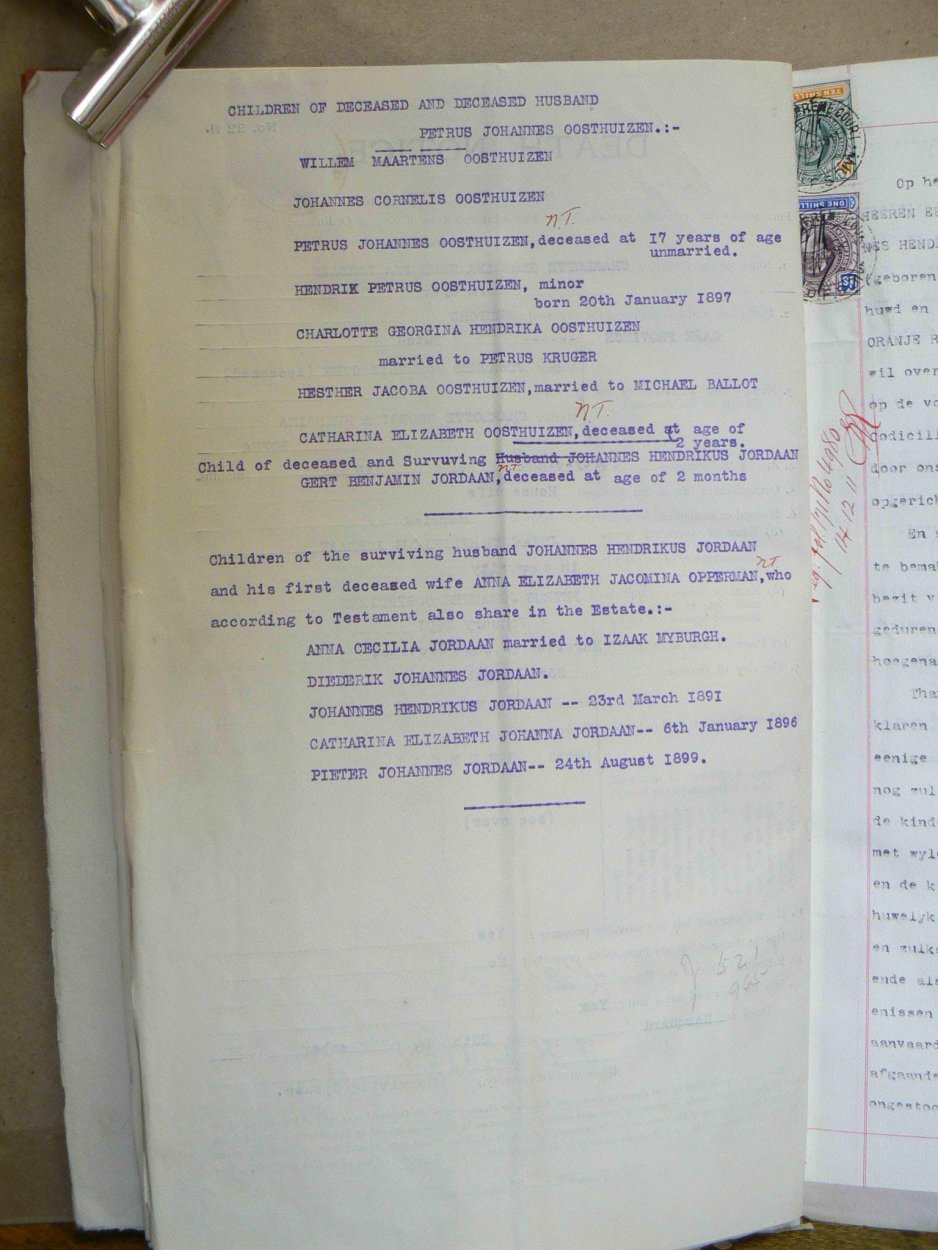 CHILDREN OF DECEASED AND DECEASED HUSBAND
PETRUS JOHANNES OOSTHUIZEN.:-
WILLEM MAARTENS OOSTHUIZEN
JOHANNES CORNELIS OOSTHUIZEN
N.T.
PETRUS JOHANNES OOSTHUIZEN,deceased at 17 years of age
unmarried.
HENDRIK PETRUS OOSTHUIZEN, minor
born 20th January 1897
CHARLOTTE GEORGINA HENDRIKA OOSTHUIZEN
married to PETRUS KRUGER
HESTHER JACOBA OOSTHUIZEN,married to MICHAEL BALLOT
N.T.
CATHARINA ELIZABETH OOSTHUIZEN,deceased at age of
2 years.
Child of deceased and Survuving Husband JOHANNES HENDRIKUS JORDAAN
N.T.
GERT BENJAMIN JORDAAN,deceased at age of 2 months
Children of the surviving husband JOHANNES HENDRIKUS JORDAAN
N.T.
and his first deceased wife ANNA ELIZABETH JACOMINA OPPERMAN,who
according to Testament also share in the Estate.:-
ANNA CECILIA JORDAAN married to IZAAK MYBURGH.
DIEDERIK JOHANNES JORDAAN.
JOHANNES HENDRIKUS JORDAAN -- 23rd March 1891
CATHARINA ELIZABETH JOHANNA JORDAAN-- 6th January 1896
PIETER JOHANNES JORDAAN-- 24th August 1899.
521
965
14.12.11
TEN SHILL
ONE SHILL
Op he
HEEREN
NES HEND
(geboren
huwd en
ORANJE R
wil over
op de vo
codicill
door ons
opgerich
En
te bema
bezit v
geduren
hoegena
Tha
klaren
eenige
nog zul
de kind
met wyl
en de k
huwelyk
en zulk
ende als
enissen
aanvaard
afgaande
ongestoo